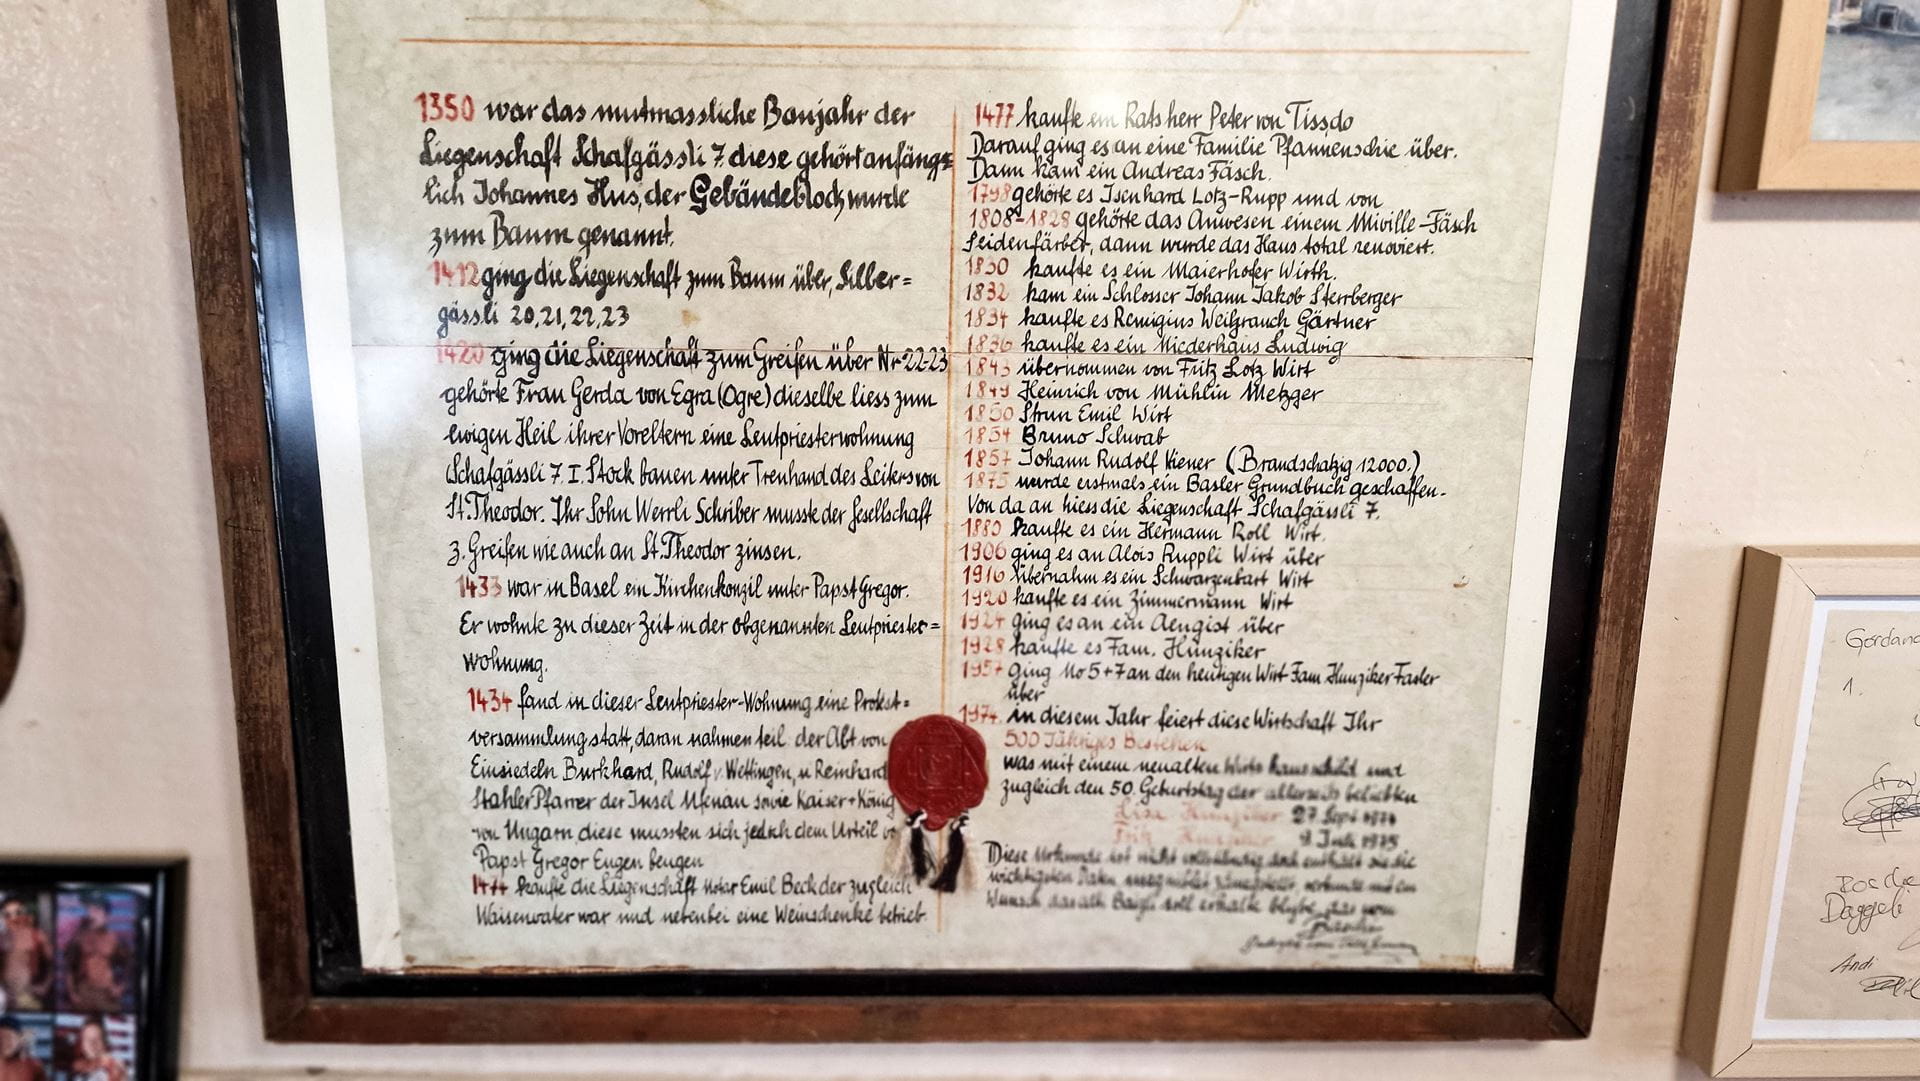 1350 war das mutmassliche Baujahr der
Liegenschaft Schafgässli 7. diese gehört anfängs=
lich Johannes Hus, der Gebäudeblock wurde
zum Baum genannt.
1412 ging die Liegenschaft zum Baum über, Silber=
gässli 20, 21, 22, 23
1420 ging die Liegenschaft zum Greifen über Nr 22-23
gehörte Frau Gerda von Egra (Ogre) dieselbe liess zum
ewigen Heil ihrer Voreltern eine Leutpriesterwohnung
Schafgässli 7. I. Stock bauen unter Treuhand des Leiters von
St. Theodor. Ihr Sohn Werrli Schriber musste der Gesellschaft
z. Greifen wie auch an St. Theodor zinsen.
1433 war in Basel ein Kirchenkonzil unter Papst Gregor.
Er wohnte zu dieser Zeit in der obgenannten Leutpriester=
wohnung.
1434 fand in dieser Leutpriester-Wohnung eine Protest=
versammlung statt, daran nahmen teil der Abt von
Einsiedeln Burkhard, Rudolf v. Wettingen, u Reinhard
Stahler Pfarrer der Insel Ufenau sowie Kaiser + König
von Ungarn diese mussten sich jedoch dem Urteil
Papst Gregor Eugen beugen
1474 kaufte die Liegenschaft Notar Emil Beck der zugleich
Waisenvater war und nebenbei eine Weinschenke betrieb.
1477 kaufte ein Ratsherr Peter von Tissdo
Darauf ging es an eine Familie Pfannenschie über.
Dann kam ein Andreas Fäsch.
1798 gehörte es Isenhard Lotz-Rupp und von
1808-1828 gehörte das Anwesen einem Miville-Fäsch
Seidenfärber, dann wurde das Haus total renoviert.
1830 kaufte es ein Maierhofer Wirth.
1832 kam ein Schlosser Johann Jakob Sterrberger
1834 kaufte es Remigius Weihrauch Gärtner
1836 kaufte es ein Niederhaus Ludwig
1843 übernommen von Fritz Lotz Wirt
1849 Heinrich von Mühlin Metzger
1850 Strun Emil Wirt
1854 Bruno Schwab
1857 Johann Rudolf Kiener (Brandschatzig 12000.)
1875 wurde erstmals ein Basler Grundbuch geschaffen.
Von da an hiess die Liegenschaft Schafgässli 7.
1880 kaufte es ein Hermann Roll Wirt.
1906 ging es an Alois Ruppli Wirt über
1916 übernahm es ein Schwarzenbart Wirt
1920 kaufte es ein Zimmermann Wirt
1924 ging es an ein Aengist über
1928 kaufte es Fam. Hunziker
1957 ging No 5+7 an den heutigen Wirt Fam Hunziker Fasler
über
1974. in diesem Jahr feiert diese Wirtschaft Ihr
500 Jähriges Bestehen
was mit einem neualten Wirtshausschild und
zugleich den 50. Geburtstag der allerseits beliebten
Lisa Hunziker 27. Sept 1974
Fritz Hunziker 9. Juli 1975
Diese Urkunde ist nicht vollständig doch enthält sie die
wichtigsten Daten
Wunsch
1.
Andi